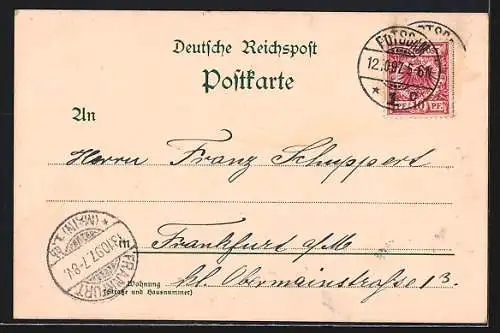 Deutsche Reichspost
Postkarte
POTSDAM
12.10.97. 5-6N.
* 1 c
10 PF.
An
Herrn Franz Schuppert
in
Frankfurt a/M
Wohnung
(Straße und Hausnummer)
kl. Obermainstraße 13.
FRANKFURT
13.10.97. 7-8V.
* (MAIN) 1.